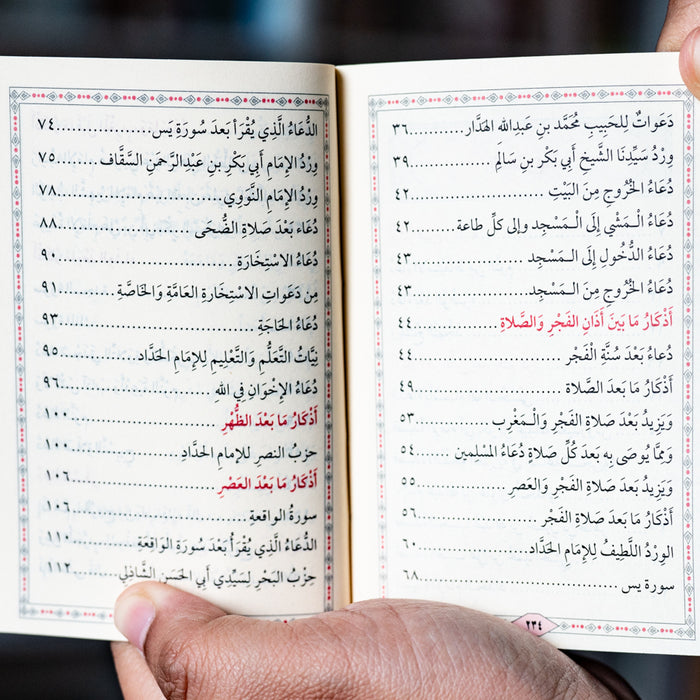 دَعَواتٌ لِلحَبِيبِ مُحَمَّد بنِ عَبدِالله الهَدَّار...........٣٦
وِرْدُ سَيِّدِنَا الشَّيخِ أَبِي بَكْر بنِ سَالِمَ ................٣٩
دُعَاءُ الخُرُوجِ مِنَ البَيْتِ ........................٤٢
دُعَاءُ الْمَشْيِ إِلَى الْـمَسْجِد وإلى كلِّ طاعة ..........٤٢
دُعَاءُ الدُّخُولِ إِلَى المَـسْجِد ......................٤٣
دُعَاءُ الخُرُوجِ مِنَ الـمَسْجِد......................٤٣
أَذْكَارُ مَا بَينَ أَذَانِ الفَجْرِ وَالصَّلَاةِ................٤٤
دُعاءُ بَعْدَ سُنَّةِ الْفَجْرِ ..........................٤٤
أَذْكَارُ مَا بَعدَ الصَّلاة ...........................٤٩
وَيَزِيدُ بَعْدَ صَلاةِ الفَجْرِ وَالْـمَغْرب ................٥٣
وَمِمَّا يُوصَى بِه بَعدَ كُلِّ صَلاةٍ دُعَاءُ المُسْلِمِين ........٥٤
وَيَزِيدُ بَعْدَ صَلاةِ الفَجْرِ وَالعَصرِ..................٥٥
أَذْكَارُ مَا بَعدَ صَلاةِ الفَجْرِ .......................٥٦
الوِرْدُ اللَّطِيفُ لِلإِمَامِ الحَدَّاد......................٦٠
سورة يس ....................................٦٨
٢٣٤
الدُّعَاءُ الَّذِي يُقْرَأ بَعدَ سُورَةِ يَس................٧٤
وِرْدُ الإِمَامِ أَبِي بَكْرِ بنِ عَبدِالرَّحمَنِ السَّقَّاف.......٧٥
وِردُ الإمَامِ النَّوَوِي............................٧٨
دُعَاء بَعْدَ صَلاةِ الضُّحَى ......................٨٨
دُعَاءُ الاسْتِخَارَةِ .............................٩٠
مِن دَعَواتِ الاسْتِخَارةِ العَامَّةِ وَالخَاصَّةِ..........٩١
دُعَاءُ الحَاجَةِ ................................٩٣
نِيَّاتُ التَّعَلُّمِ وَالتَّعْلِيمِ لِلإِمَامِ الحَدَّاد.............٩٥
دُعَاءُ الإِخْوَانِ فِي اللهِ .........................٩٦
أَذْكَارُ مَا بَعْدَ الظُّهْرِ .........................١٠٠
حزبُ النصرِ للإمامِ الحدَّادِ ....................١٠٠
أَذْكَارُ مَا بَعْدَ العَصْرِ..........................١٠٦
سورةُ الواقعةِ................................١٠٦
الدُّعَاءُ الَّذِي يُقْرَأُ بَعْدَ سُورَةِ الوَاقِعَةِ............١١٠
حِزْبُ البَحْرِ لِسَيِّدِي أَبِي الحَسَنِ الشَّاذِلِي........١١٢